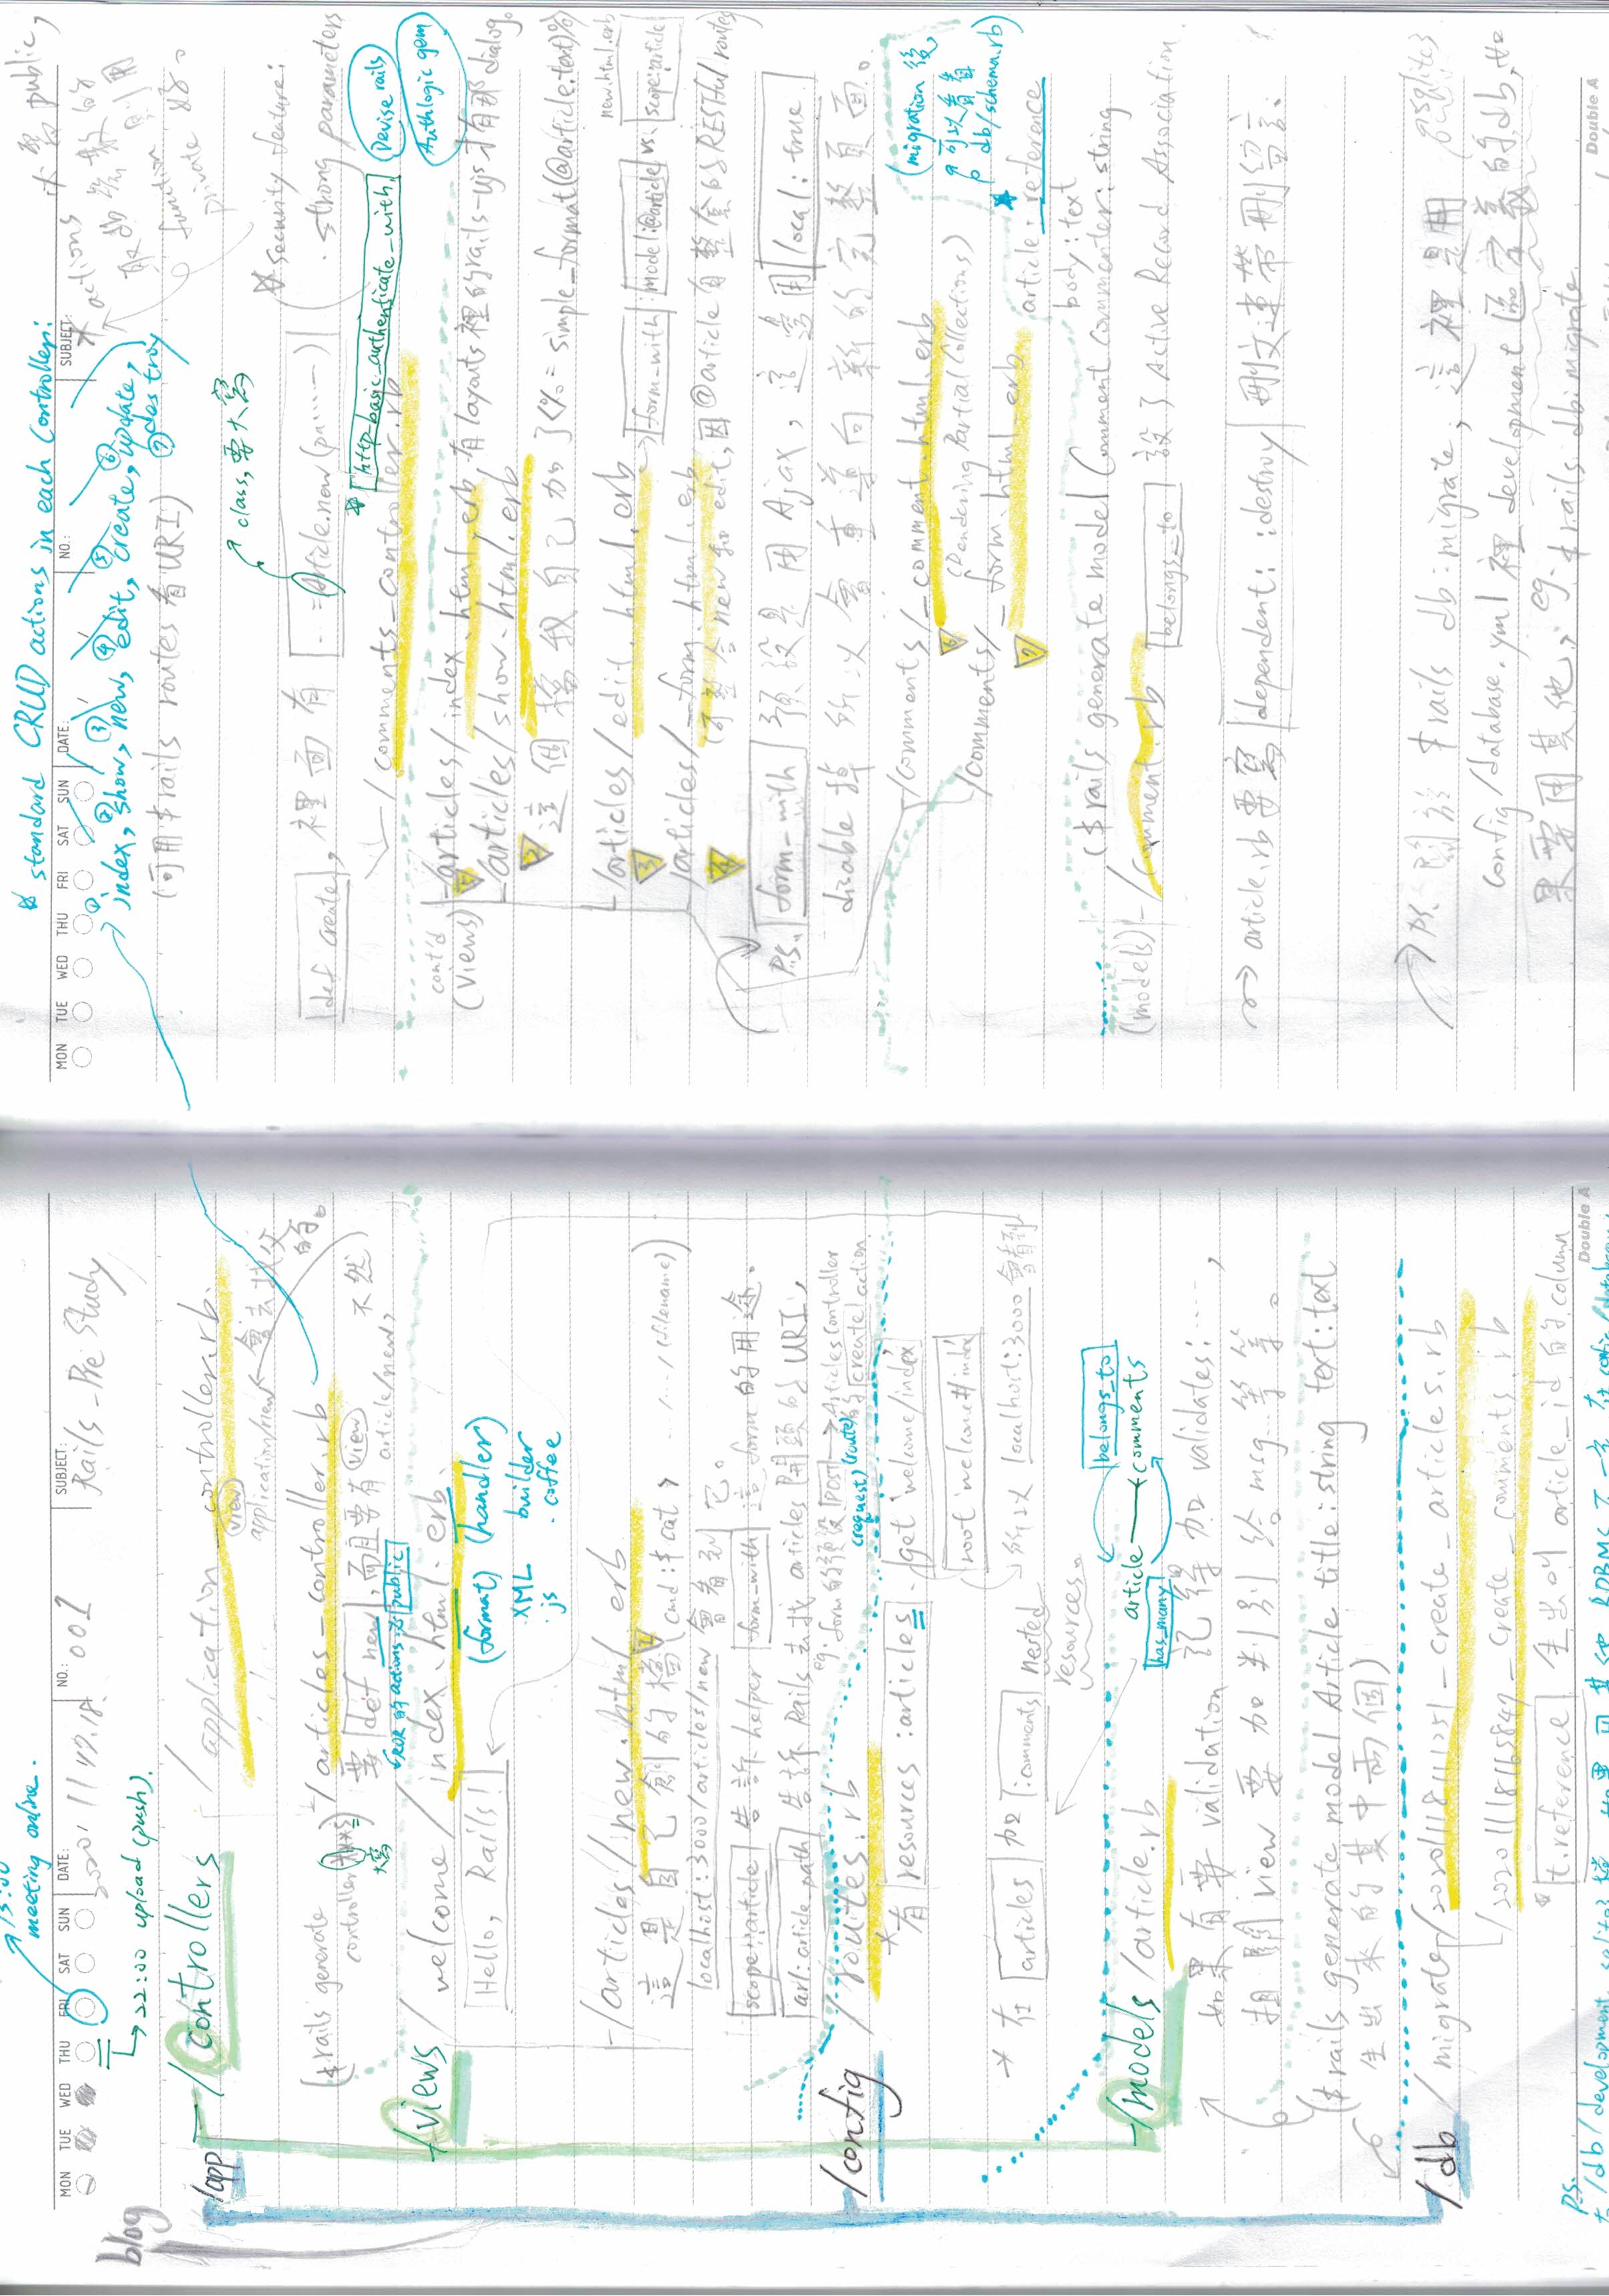 meeting online.
MON TUE WED THU FRI SAT SUN DATE: NO.: SUBJECT:
2020 11 17.18. 001 Rails_Pre Study
22:00 upload (push).
blog
/app
/controllers /application_controller.rb.
view
application/new 會去找父的。
($ rails generate controller ***s) /articles_controller.rb
大寫
要 def new, 而且要有 view article/new, 不然
ROR 的 actions 必 public
/views / welcome / index.html.erb.
Hello, Rails! (format) (handler)
·XML builder
·js ·coffee
/articles/new.html.erb
這是自己創的檔 (cmd:$ cat > .../.../(filename))
localhost:3000/articles/new 會看到它。
scope::article 告訴 helper form_with 這 form 的用途。
url:article_path 告訴 Rails 去找 articles 開頭的 URI,
eg. form的預設 POST → Articles Controller
(request) (route) 的 create action
/config / routes.rb
*有 resources :articles. get 'welcome/index'
root 'welcome#index'
* 在 articles 加 :comments nested resources。
所以 localhost:3000 會看到
belongs_to
article comments
has_many
/models /article.rb
如果有要 validation 記得加 validates:....,
相關 view 要加判別給 msg 等等。
($ rails generate model Article title:string text:text
生出來的其中兩個)
/db / migrate/20201118111251_create_articles.rb
/20201118165847_create_comments.rb
*t.reference 生出叫 article_id 的 column
p.s.
Double A
* standard CRUD actions in each Controller:
MON TUE WED THU FRI SAT SUN DATE: NO.: SUBJECT:
①index, ②show, ③new, ④edit, ⑤create, ⑥update,
⑦destroy
(可用 $ rails routes 看 URI)
* actions 必寫 public,
取 db 參數的
function 則用
private 好。
class, 要大寫
def create, 裡面有 ..=Article.new(pa......)
* security feature:
· strong parameters
* http_basic_authenticate_with
Devise rails
Authlogic gem
/comments_controller.rb
cont'd
(views)
/articles/index.html.erb 有 layouts 裡的 rails-ujs 才有那 dialog。
5
/articles/show.html.erb
2 這個檔我自己加了 <%= simple_format(@article.text)%>
/articles/edit.html.erb
3
new.html.erb
form_with : model:@article vs. scope:article
/articles/_form.html.erb
4 (可整合 new 和 edit, 因 @article 有整套的 RESTful routes
P.S. form_with 預設是用 Ajax, 這邊用 local: true
disable 掉所以會重導向新的完整頁面。
/comments/_comment.html.erb
6 (Rendering Partial Collections)
/comments/_form.html.erb
7
(migration 後,
可以看看
db/schema.rb)
article:reference
body:text
($ rails generate model Comment Commenter:string
(models) /comment.rb belongs_to 設了 Active Record Association
article.rb 要寫 dependent: :destroy 刪文連帶刪留言.
P.S. 關於 $ rails db:migrate, 這裡是用 sqlite3
config/database.yml 裡 development 區定義的 db, 如
果要用其他, eg. $ rails db:migrate
Double A